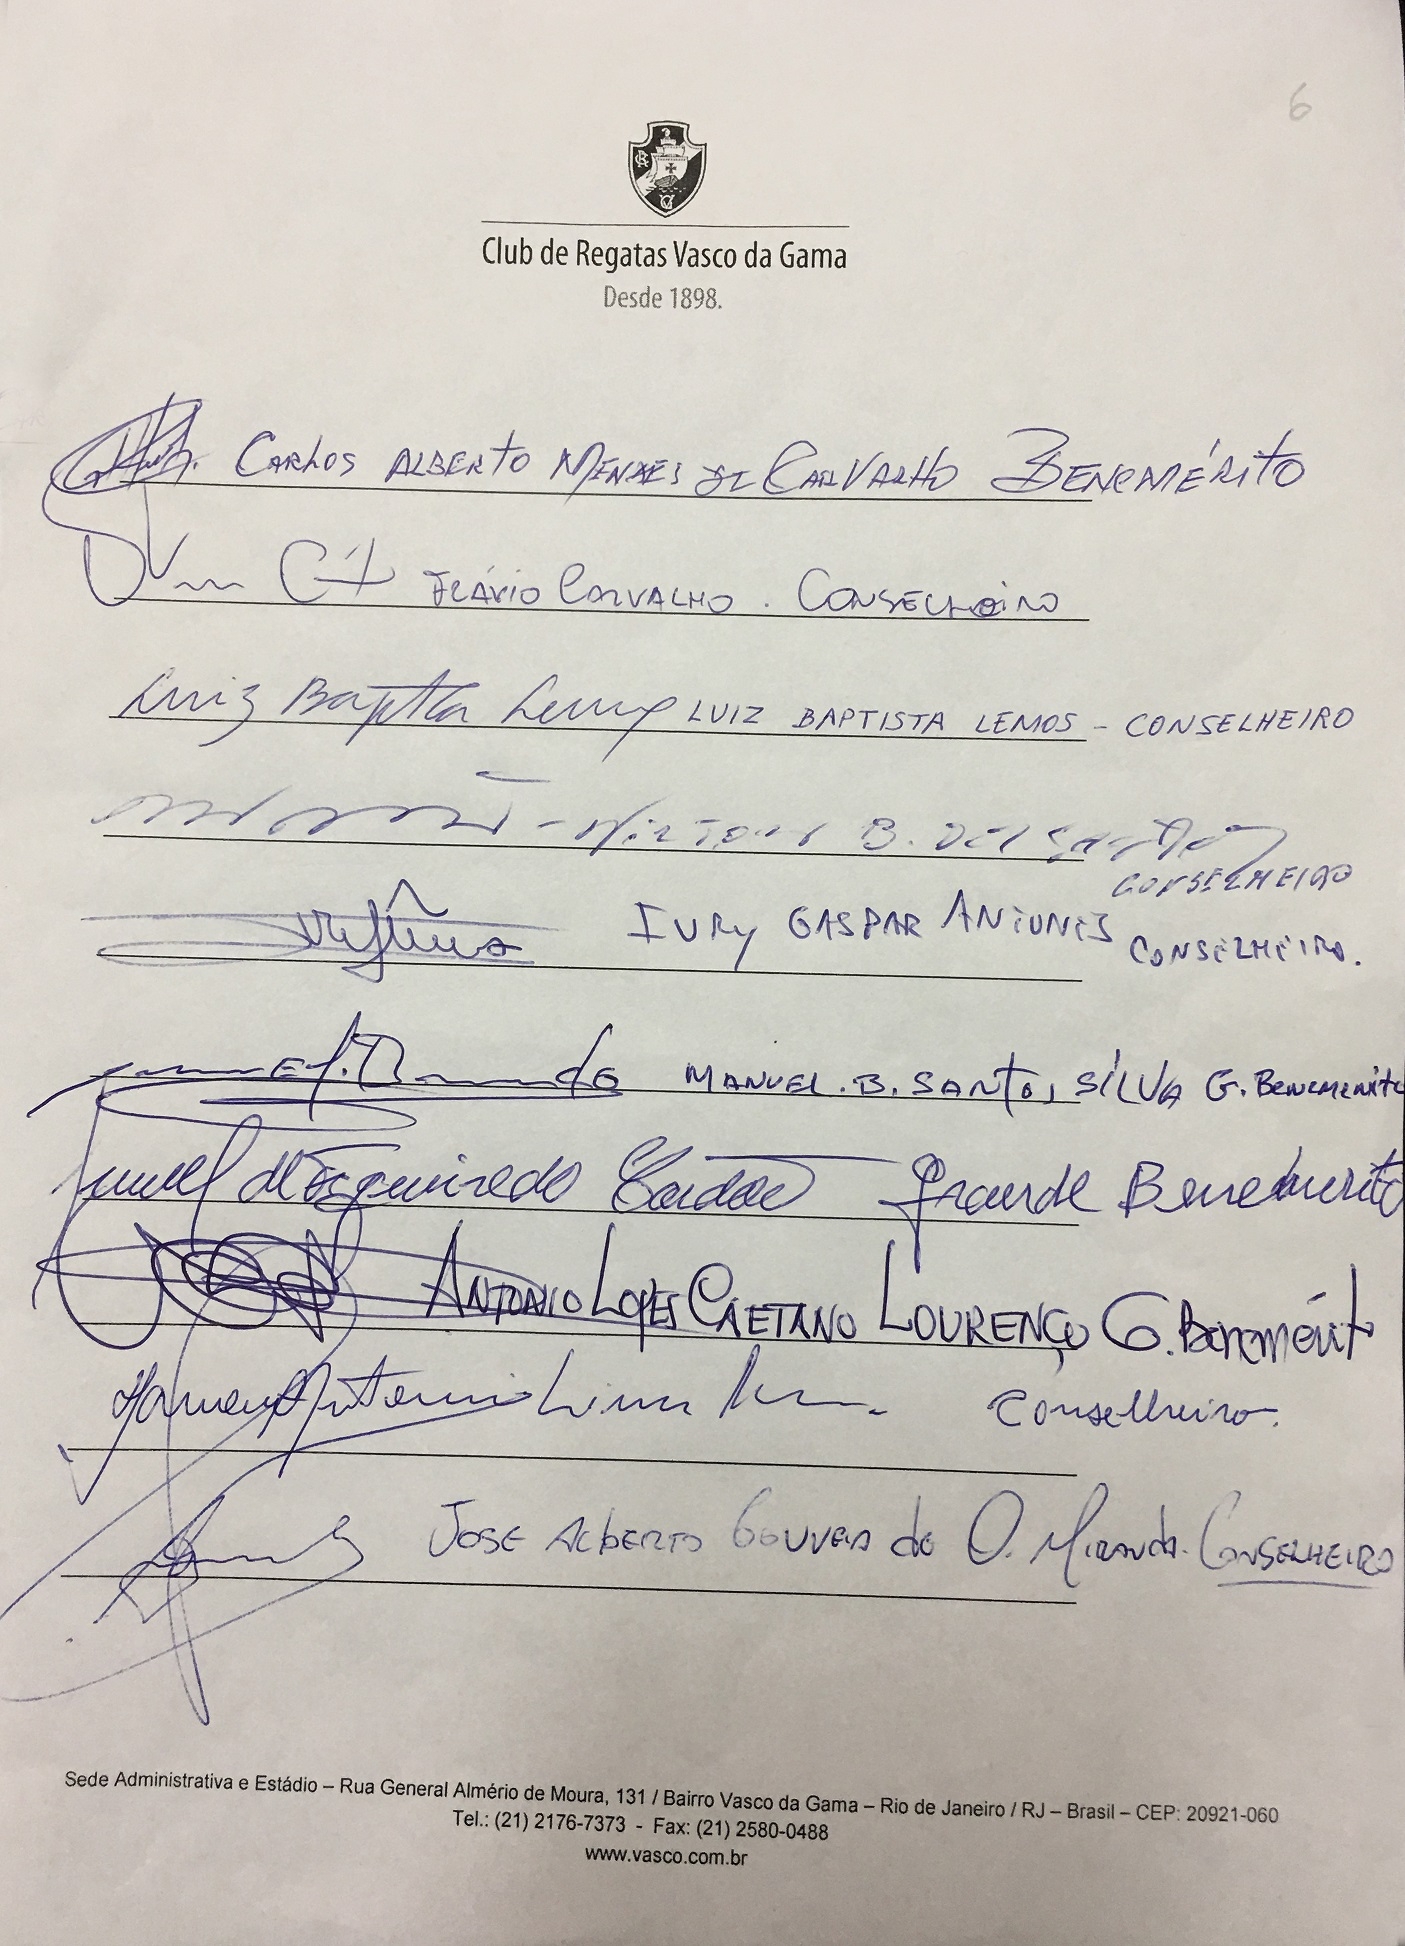 6
Club de Regatas Vasco da Gama
Desde 1898.
CARLOS ALBERTO MENDES DE CARVALHO BENEMÉRITO
FLÁVIO CARVALHO . CONSELHEIRO
Luiz Baptista Lemos LUIZ BAPTISTA LEMOS - CONSELHEIRO
B. DOS
CONSELHEIRO
IURY GASPAR ANTUNES CONSELHEIRO.
MANUEL . B. SANTOS SILVA G. BENEMERITO
Figueiredo Grande Benemerito
ANTONIO LOPES CAETANO LOURENÇO G. Benemérit
Antonio Lima Conselheiro.
JOSE ALBERTO GOUVEIA do O. MIRANDA. CONSELHEIRO
Sede Administrativa e Estádio – Rua General Almério de Moura, 131 / Bairro Vasco da Gama – Rio de Janeiro / RJ – Brasil – CEP: 20921-060
Tel.: (21) 2176-7373 - Fax: (21) 2580-0488
www.vasco.com.br